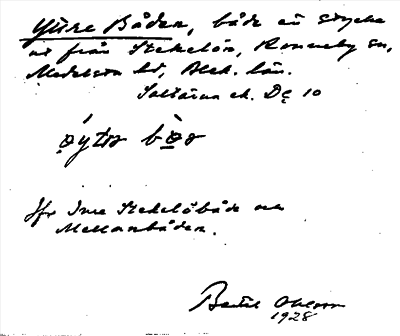 Yttre Båden, både en stycke
ut från Stekelön, Ronneby sn,
Medelsta hd, Blek. län.
Saltärna ek. Dç 10
ǫ́ytɒr bǫ̀ɒ
Jfr Inre Stekelöbåde och
Mellanbåden.
Bertil Ohlsson
1928